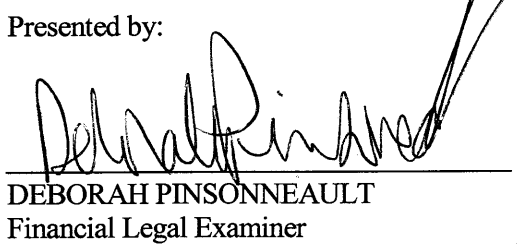 Presented by:
Deborah Pinsonneault
DEBORAH PINSONNEAULT
Financial Legal Examiner